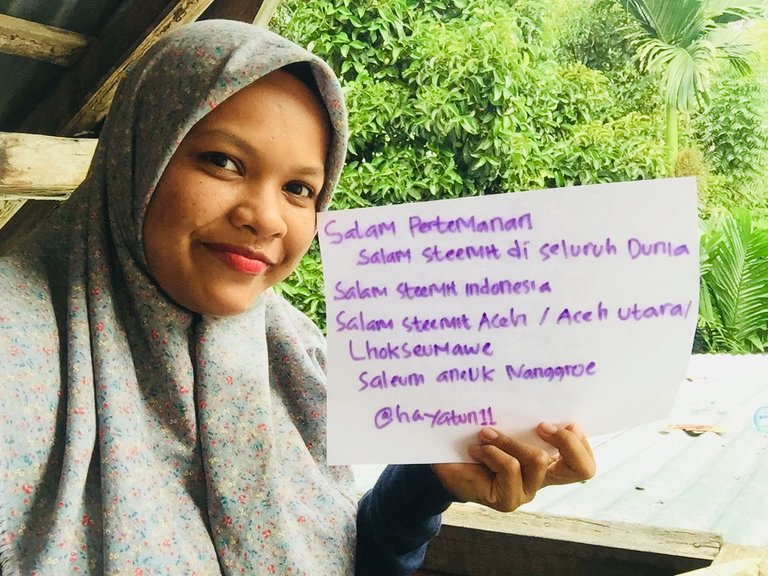 Salam Pertemanan
Salam Steemit di seluruh Dunia
Salam Steemit Indonesia
Salam Steemit Aceh / Aceh Utara/
Lhokseumawe
Saleum aneuk Nanggroe
@hayatun11